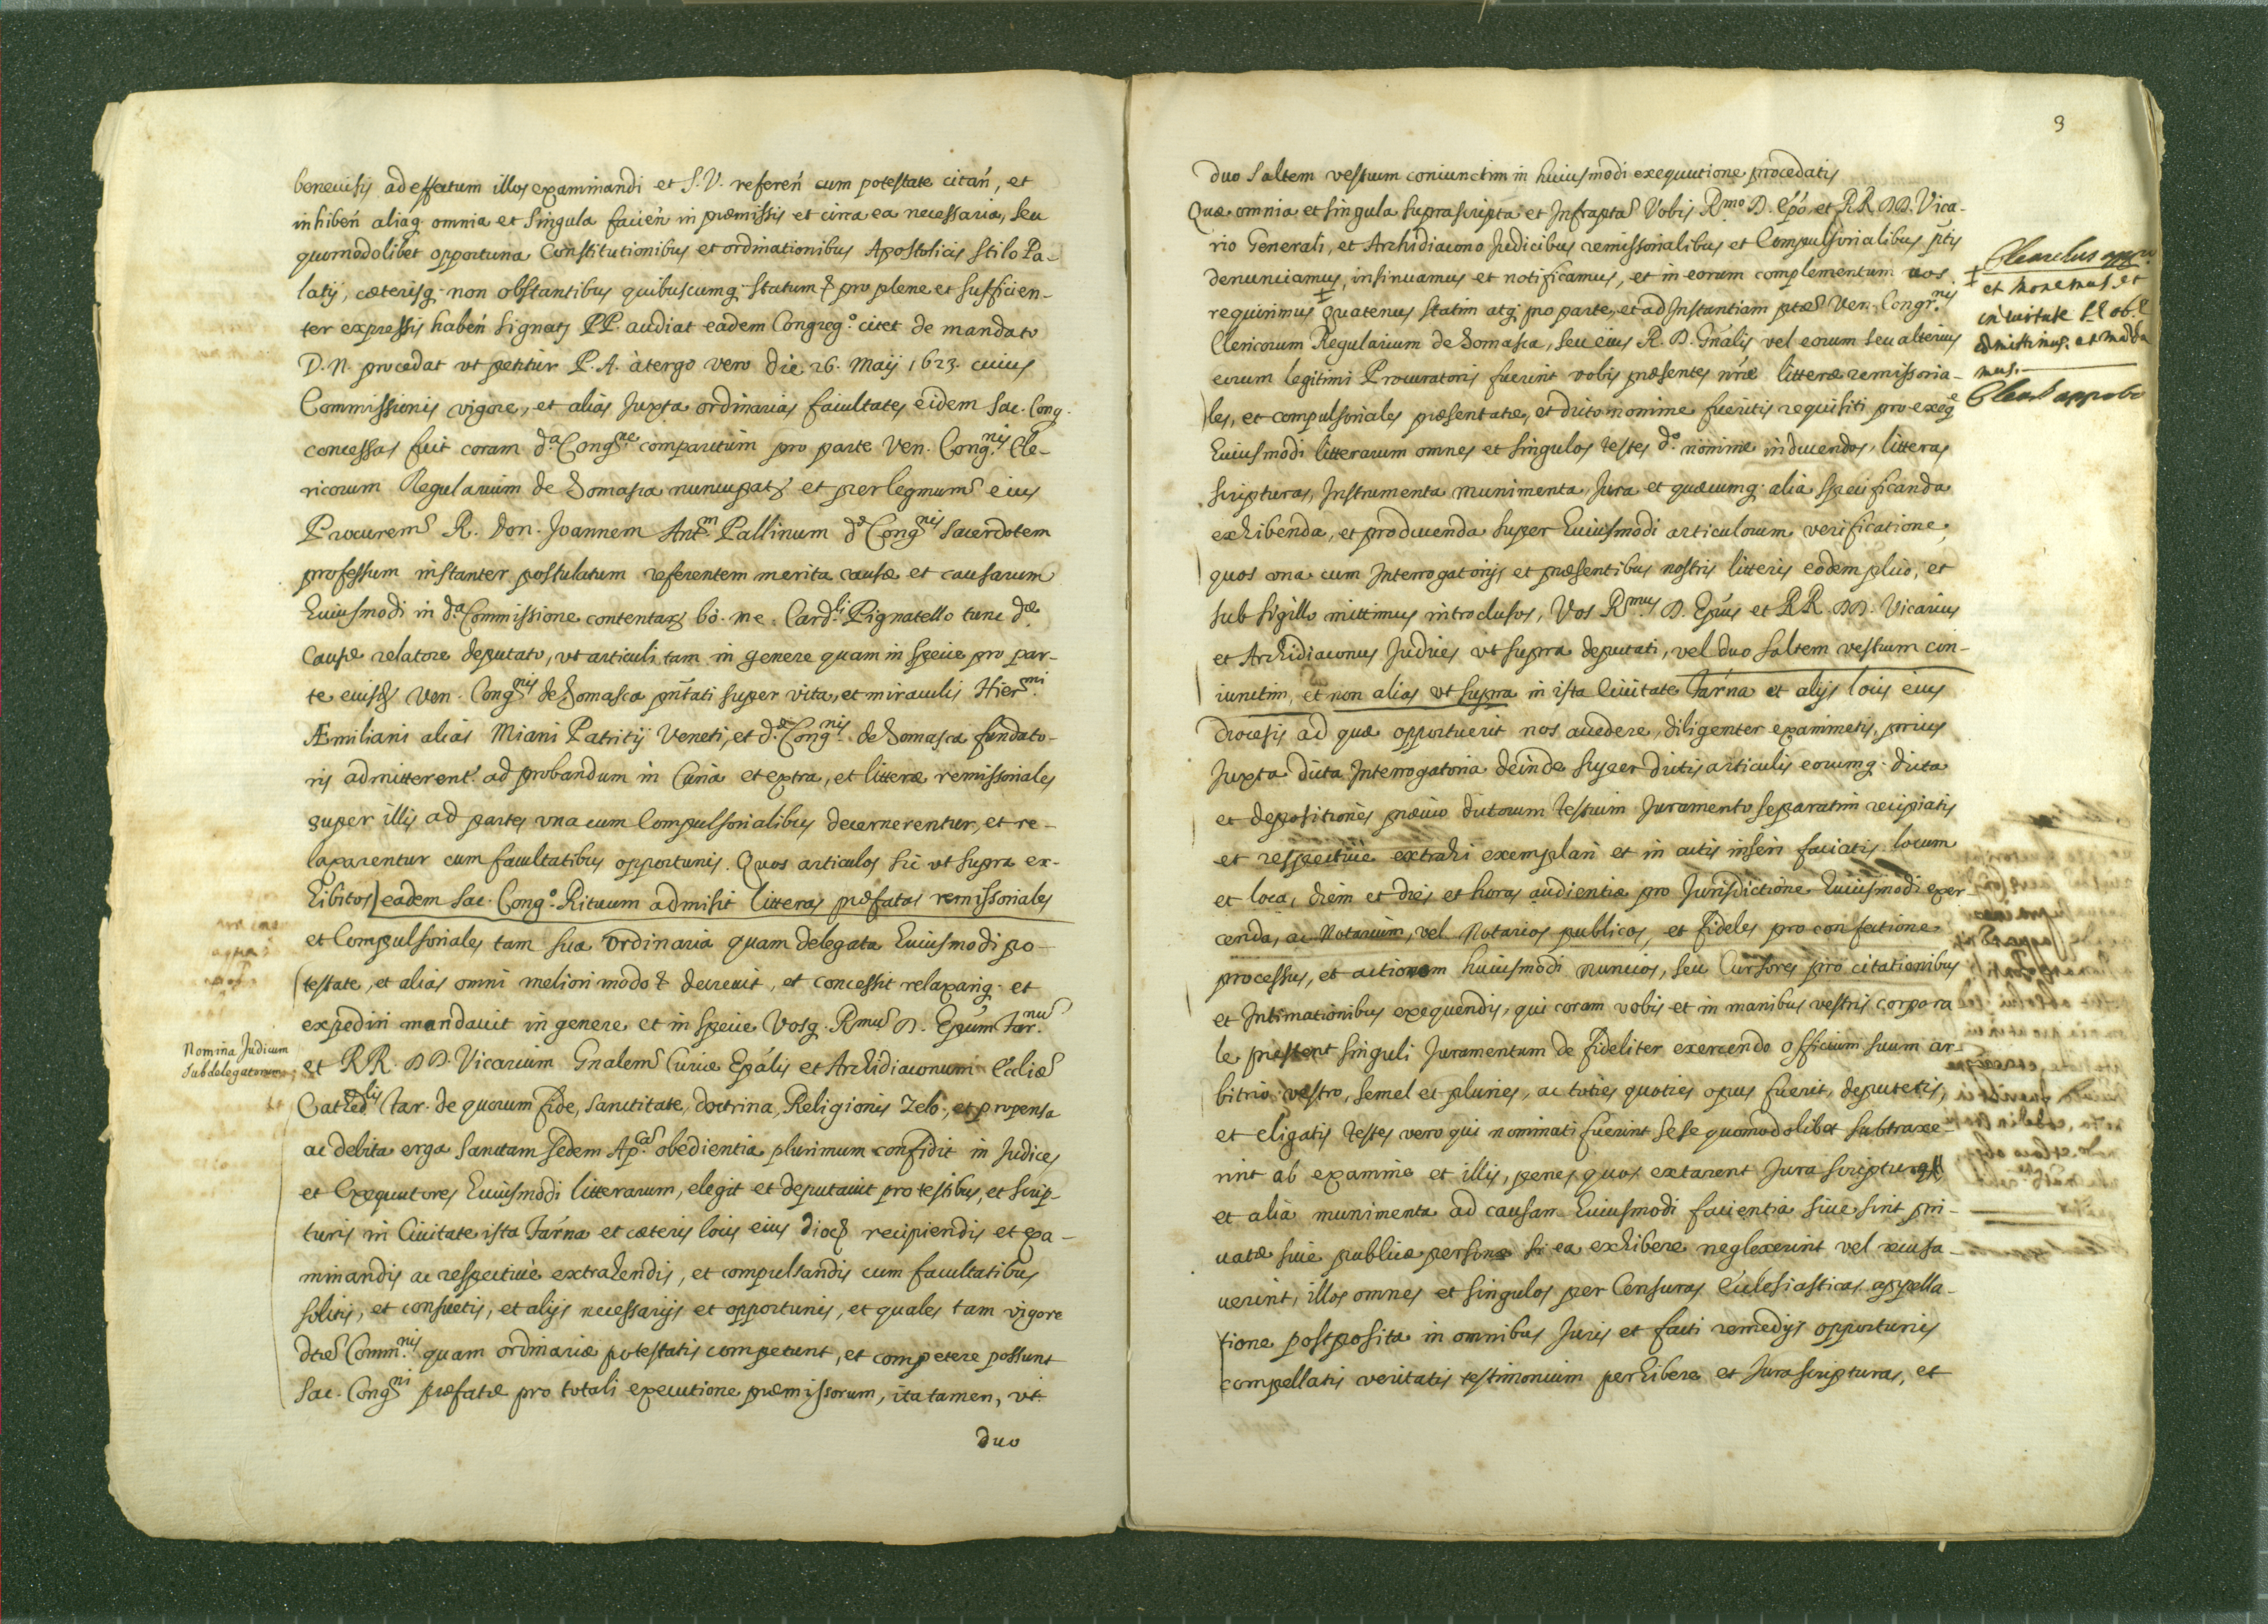 beneuisis ad effectum illos examinandi et S.V. referen̄ cum potestate citan̄, et
inhiben̄ aliaq. omnia et singula facien̄ in præmissis et circa ea necessaria, seu
quomodolibet opportuna Constitutionibus et ordinationibus Apostolicis stilo Pa-
latij, cæterisq. non obstantibus quibuscumq. statum & pro plene et sufficien-
ter expressis haben̄ signat PP. audiat eadem Congreg.º citet de mandato
D.N. procedat vt petitur P.A. à tergo vero die 26. Maij 1623. cuius
Commissionis vigore, et alias Juxta ordinarias facultates eidem Sac. Cong.
concessas fuit coram d.ª Cong.ne comparitum pro parte Ven. Cong.nis Cle-
ricorum Regularium de Somasca nuncupat et per legmum eius
Procurem R. Don. Joannem Ant.m Pallinum d. Cong.nis sacerdotem
professum instanter postulatum referentem merita causæ et causarum
huiusmodi in d.ª Commissione contentar bo. me. Card.li Pignatello tunc d.æ
Causæ relatore deputato, vt articuli tam in genere quam in specie pro par-
te eiusd Ven. Cong.nis de Somasca pn̄tati super vita, et miraculis Hier.mi
Æmiliani alias Miani Patritij Veneti, et d.æ Cong.nis de Somasca fundato-
ris admitterent.r ad probandum in Curia et extra, et litteræ remissoriales
super illis ad partes vna cum Compulsorialibus decernerentur, et re-
laxarentur cum facultatibus opportunis. Quos articulos sic vt supra ex-
hibitos eadem Sac. Cong.º Rituum admisit litteras præfatas remissoriales
et Compulsoriales tam sua ordinaria quam delegata huiusmodi po-
testate, et alias omni meliori modo & decreuit, et concessit relaxariq. et
expediri mandauit in genere et in specie Vosq. Rmū D. Epūm Tar.nū
Nomina Judicum
subdelegatorum
et RR. DD. Vicarium Gn̄alem Curiæ Epālis et Archidiaconum Eccliæ
Cathed.lis Tar. de quorum fide, sanctitate, doctrina, Religionis Zelo, et propensa
ac debita erga Sanctam Sedem Ap.cā obedientia plurimum confidit in Judices
et Exequutores huiusmodi litterarum, elegit et deputauit pro testibus, et scrip-
turis in Ciuitate ista Tar̄na et cæteris locis eius dioc recipiendis et exa-
minandis ac respectiuè extrahendis, et compulsandis cum facultatibus
solitis, et consuetis, et alijs necessarijs et opportunis, et quales tam vigore
dtæ Comm.nis quam ordinariæ potestatis competunt, et competere possunt
Sac. Cong.ni præfatæ pro totali executione præmissorum, ita tamen, vt.
duo
3
duo saltem vestrum coniunctim in huiusmodi exequutione procedatis
Quæ omnia et singula suprascripta et Infrapta Vobis R.mo D. Epō et RR. DD. Vica-
rio Generali, et Archidiacono Judicibus remissorialibus et Compulsorialibus p̄tis
denunciamus, insinuamus et notificamus, et in eorum complementum vos
requirimus quatenus statim atq. pro parte, et ad Instantiam ptæ Ven. Congr.nis
Clericorum Regularium de Somasca, seu eius R. P. Gn̄alis vel eorum seu alterius
eorum legitimi Procuratoris fuerint vobis præsentes nr̄æ litteræ remissoria-
les, et compulsoriales præsentatæ, et dicto nomine fueritis requisiti pro exeq.e
huiusmodi litterarum omnes et singulos testes d.º nomine inducendos, litteras
scripturas, Instrumenta munimenta, Jura et quæcumq. alia specificanda
exhibenda, et producenda super huiusmodi articulorum verificatione,
quos vna cum Interrogatorijs et præsentibus nostris litteris eodem plico, et
sub sigillo mittimus introclusos, Vos R.mus D. Epūs et RR. DD. Vicarius
et Archidiaconus Judices vt supra deputati, vel duo saltem vestrum con-
iunctim, et non alias vt supra in ista Ciuitate Tar̄na et alijs locis eius
diocesis ad quæ opportuerit nos accedere, diligenter examinetis, prius
Juxta dicta Interrogatoria deinde super dictis articulis eorumq. dicta
et depositiones præuio dictorum testium Juramento separatim recipiatis
et respectiuè extrahi exemplari et in actis inseri faciatis locum
et loca, diem et dies et horas audientiæ pro Jurisdictione huiusmodi exer
cenda, ac Notarium, vel Notarios publicos, et fideles pro confectione
processus, et actionem huiusmodi nuncios, seu Cursores pro citationibus
et Intimationibus exequendis, qui coram vobis et in manibus vestris corpora
le prestent singuli Juramentum de fideliter exercendo officium suum ar-
bitrio vestro, semel et pluries, ac toties quoties opus fuerit, deputetis,
et eligatis testes vero qui nominati fuerint sese quomodolibet subtraxe-
rint ab examine et illis, penes quos extarent Jura scripturas
et alia munimenta ad causam huiusmodi facientia siue sint pri-
uatæ siue publicæ personæ si ea exhibere neglexerint vel recusa-
uerint, illos omnes et singulos per Censuras Ecclesiasticas appella-
tione postposita in omnibus Juris et facti remedijs opportunis
compellatis veritatis testimonium perhibere et Jura scripturas, et
et monemus et
in virtute S.æ ob.æ
committimus et manda
mus.
approbo